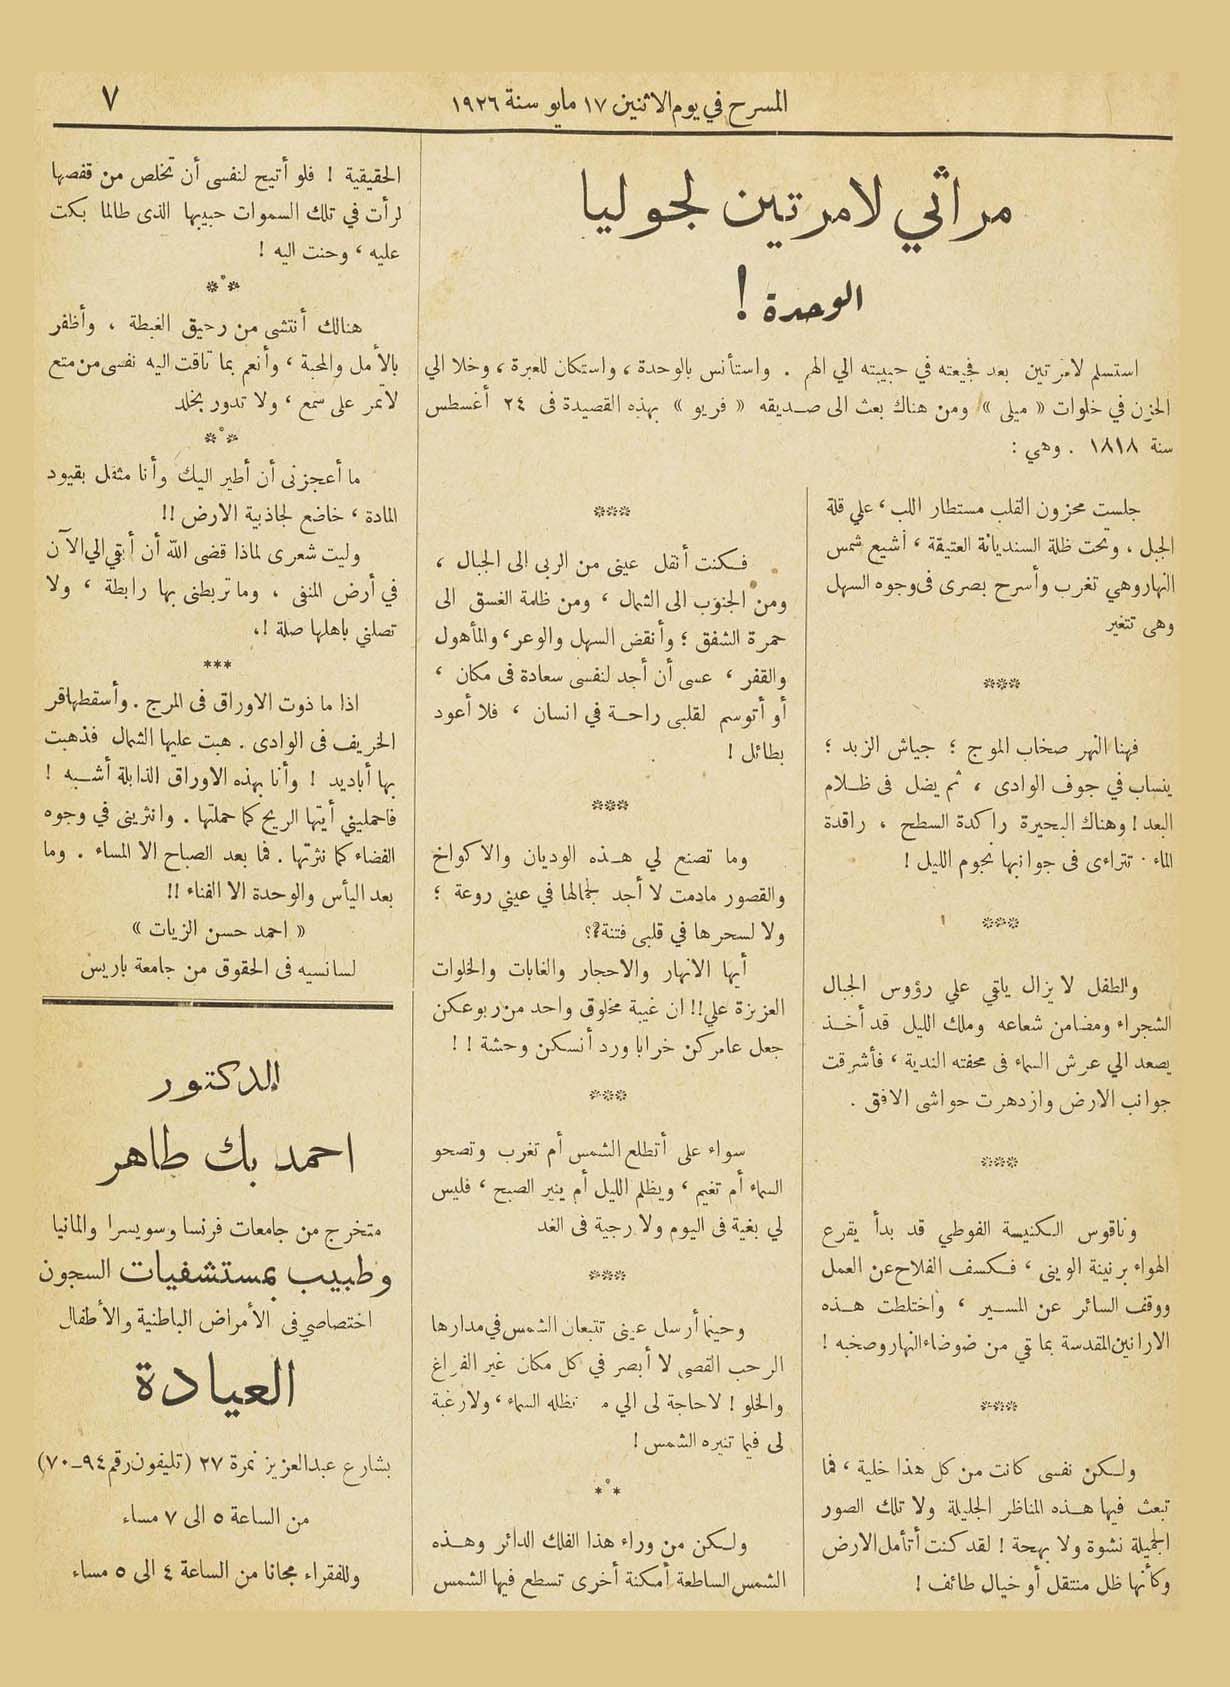 المسرح في يوم الاثنين ١٧ مايو سنة ١٩٢٦
٧
مراثي لامرتين لجوليا
الوحدة !
استسلم لامرتين بعد فجيعته في حبيبته الي الهم . واستأنس بالوحدة ، واستكان للعبرة ، وخلا الي
الحزن في خلوات « ميلى » ومن هناك بعث الى صديقه « فريو » بهذه القصيدة فى ٢٤ أغسطس
سنة ١٨١٨ . وهي :
جلست محزون القلب مستطار اللب ، علي قلة
الجبل ، وتحت ظلة السنديانة العتيقة ، أشيع شمس
النهار وهي تغرب وأسرح بصرى فى وجوه السهل
وهى تتغير
***
فهنا النهر صخاب الموج ؛ جياش الزبد ؛
ينساب في جوف الوادى ، ثم يضل فى ظلام
البعد ! وهناك البحيرة راكدة السطح ، راقدة
الماء . تتراءى فى جوانبها نجوم الليل !
***
والطفل لا يزال يلقي علي رؤوس الجبال
الشجراء ومضا من شعاعه وملك الليل قد أخذ
يصعد الي عرش السماء فى محفته الندية ، فأشرقت
جوانب الارض وازدهرت حواشى الافق .
***
وناقوس الكنيسة القوطي قد بدأ يقرع
الهواء برنينه الوينى ، فكسف الفلاح عن العمل
ووقف السائر عن المسير ، واختلطت هذه
الارانين المقدسة بما بقي من ضوضاء النهار وصخبه !
***
ولكن نفسى كانت من كل هذا خلية ، فما
تبعث فيها هذه المناظر الجليلة ولا تلك الصور
الجميلة نشوة ولا بهجة ! لقد كنت أتأمل الارض
وكأنها ظل منتقل أو خيال طائف !
***
فكنت أنقل عينى من الربى الى الجبال ،
ومن الجنوب الى الشمال ، ومن ظلمة الغسق الى
حمرة الشفق ؛ وأنقض السهل والوعر ، والمأهول
والقفر ، عسى أن أجد لنفسى سعادة فى مكان ،
أو أتوسم لقلبى راحة في انسان ، فلا أعود
بطائل !
***
وما تصنع لي هذه الوديان والاكواخ
والقصور مادمت لا أجد لجمالها في عيني روعة ؛
ولا لسحرها في قلبى فتنة ؟
أيها الانهار والاحجار والغابات والخلوات
العزيزة علي !! ان غيبة مخلوق واحد من ربوعكن
جعل عامركن خرابا ورد أنسكن وحشة ! !
***
سواء على أتطلع الشمس أم تغرب وتصحو
السماء أم تغيم ، ويظلم الليل أم ينير الصبح ، فليس
لي بغية فى اليوم ولا رجية فى الغد
***
وحينما أرسل عينى تتبعان الشمس في مدارها
الرحب القصى لا أبصر في كل مكان غير الفراغ
والخلو ! لا حاجة لى الي م تظله السماء ، ولا رغبة
لى فيما تنيره الشمس !
***
ولكن من وراء هذا الفلك الدائر وهذه
الشمس الساطعة أمكنة أخرى تسطع فيها الشمس
الحقيقية ! فلو أتيح لنفسى أن تخلص من قفصها
لرأت في تلك السموات حبيبها الذى طالما بكت
عليه ، وحنت اليه !
***
هنالك أنتشى من رحيق الغبطة ، وأظفر
بالأمل والمحبة ، وأنعم بما تاقت اليه نفسى من متع
لا تمر على سمع ، ولا تدور بخلد
***
ما أعجزنى أن أطير اليك وأنا مثقل بقيود
المادة ، خاضع لجاذبية الارض !!
وليت شعرى لماذا قضى الله أن أبقي الي الآن
في أرض المنفى ، وما تربطنى بها رابطة ، ولا
تصلني باهلها صلة !
***
اذا ما ذوت الاوراق فى المرج . وأسقطها قر
الخريف فى الوادى . هبت عليها الشمال فذهبت
بها أباديد ! وأنا بهذه الاوراق الذابلة أشبه !
فاحمليني أيتها الريح كما حملتها . وانثرينى في وجوه
الفضاء كما نثرتها . فما بعد الصباح الا المساء . وما
بعد اليأس والوحدة الا الفناء !!
« احمد حسن الزيات »
لسانسيه فى الحقوق من جامعة باريس
الدكتور
احمد بك طاهر
متخرج من جامعات فرنسا وسويسرا والمانيا
وطبيب بمستشفيات السجون
اختصاصي فى الأمراض الباطنية والأطفال
العيادة
بشارع عبد العزيز نمرة ٢٧ (تليفون رقم ٩٤-٧٠)
من الساعة ٥ الى ٧ مساء
وللفقراء مجانا من الساعة ٤ الى ٥ مساء